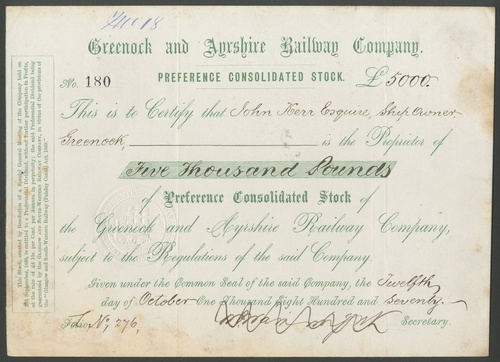 Greenock and Ayrshire Railway Company.
No. 180 PREFERENCE CONSOLIDATED STOCK. £5000.
This is to Certify that John Kerr Esquire, Ship Owner
Greenock, is the Proprietor of
Five Thousand Pounds
of Preference Consolidated Stock of
the Greenock and Ayrshire Railway Company,
subject to the Regulations of the said Company.
Given under the Common Seal of the said Company, the Twelfth
day of October One Thousand Eight Hundred and Seventy.
Folio No, 276, Secretary.